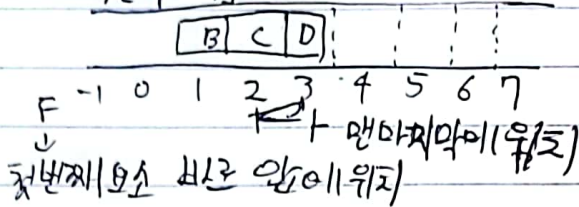 B C D
-1 0 1 2 3 4 5 6 7
F
맨마지막에 위치
첫번째 요소 바로 앞에 위치